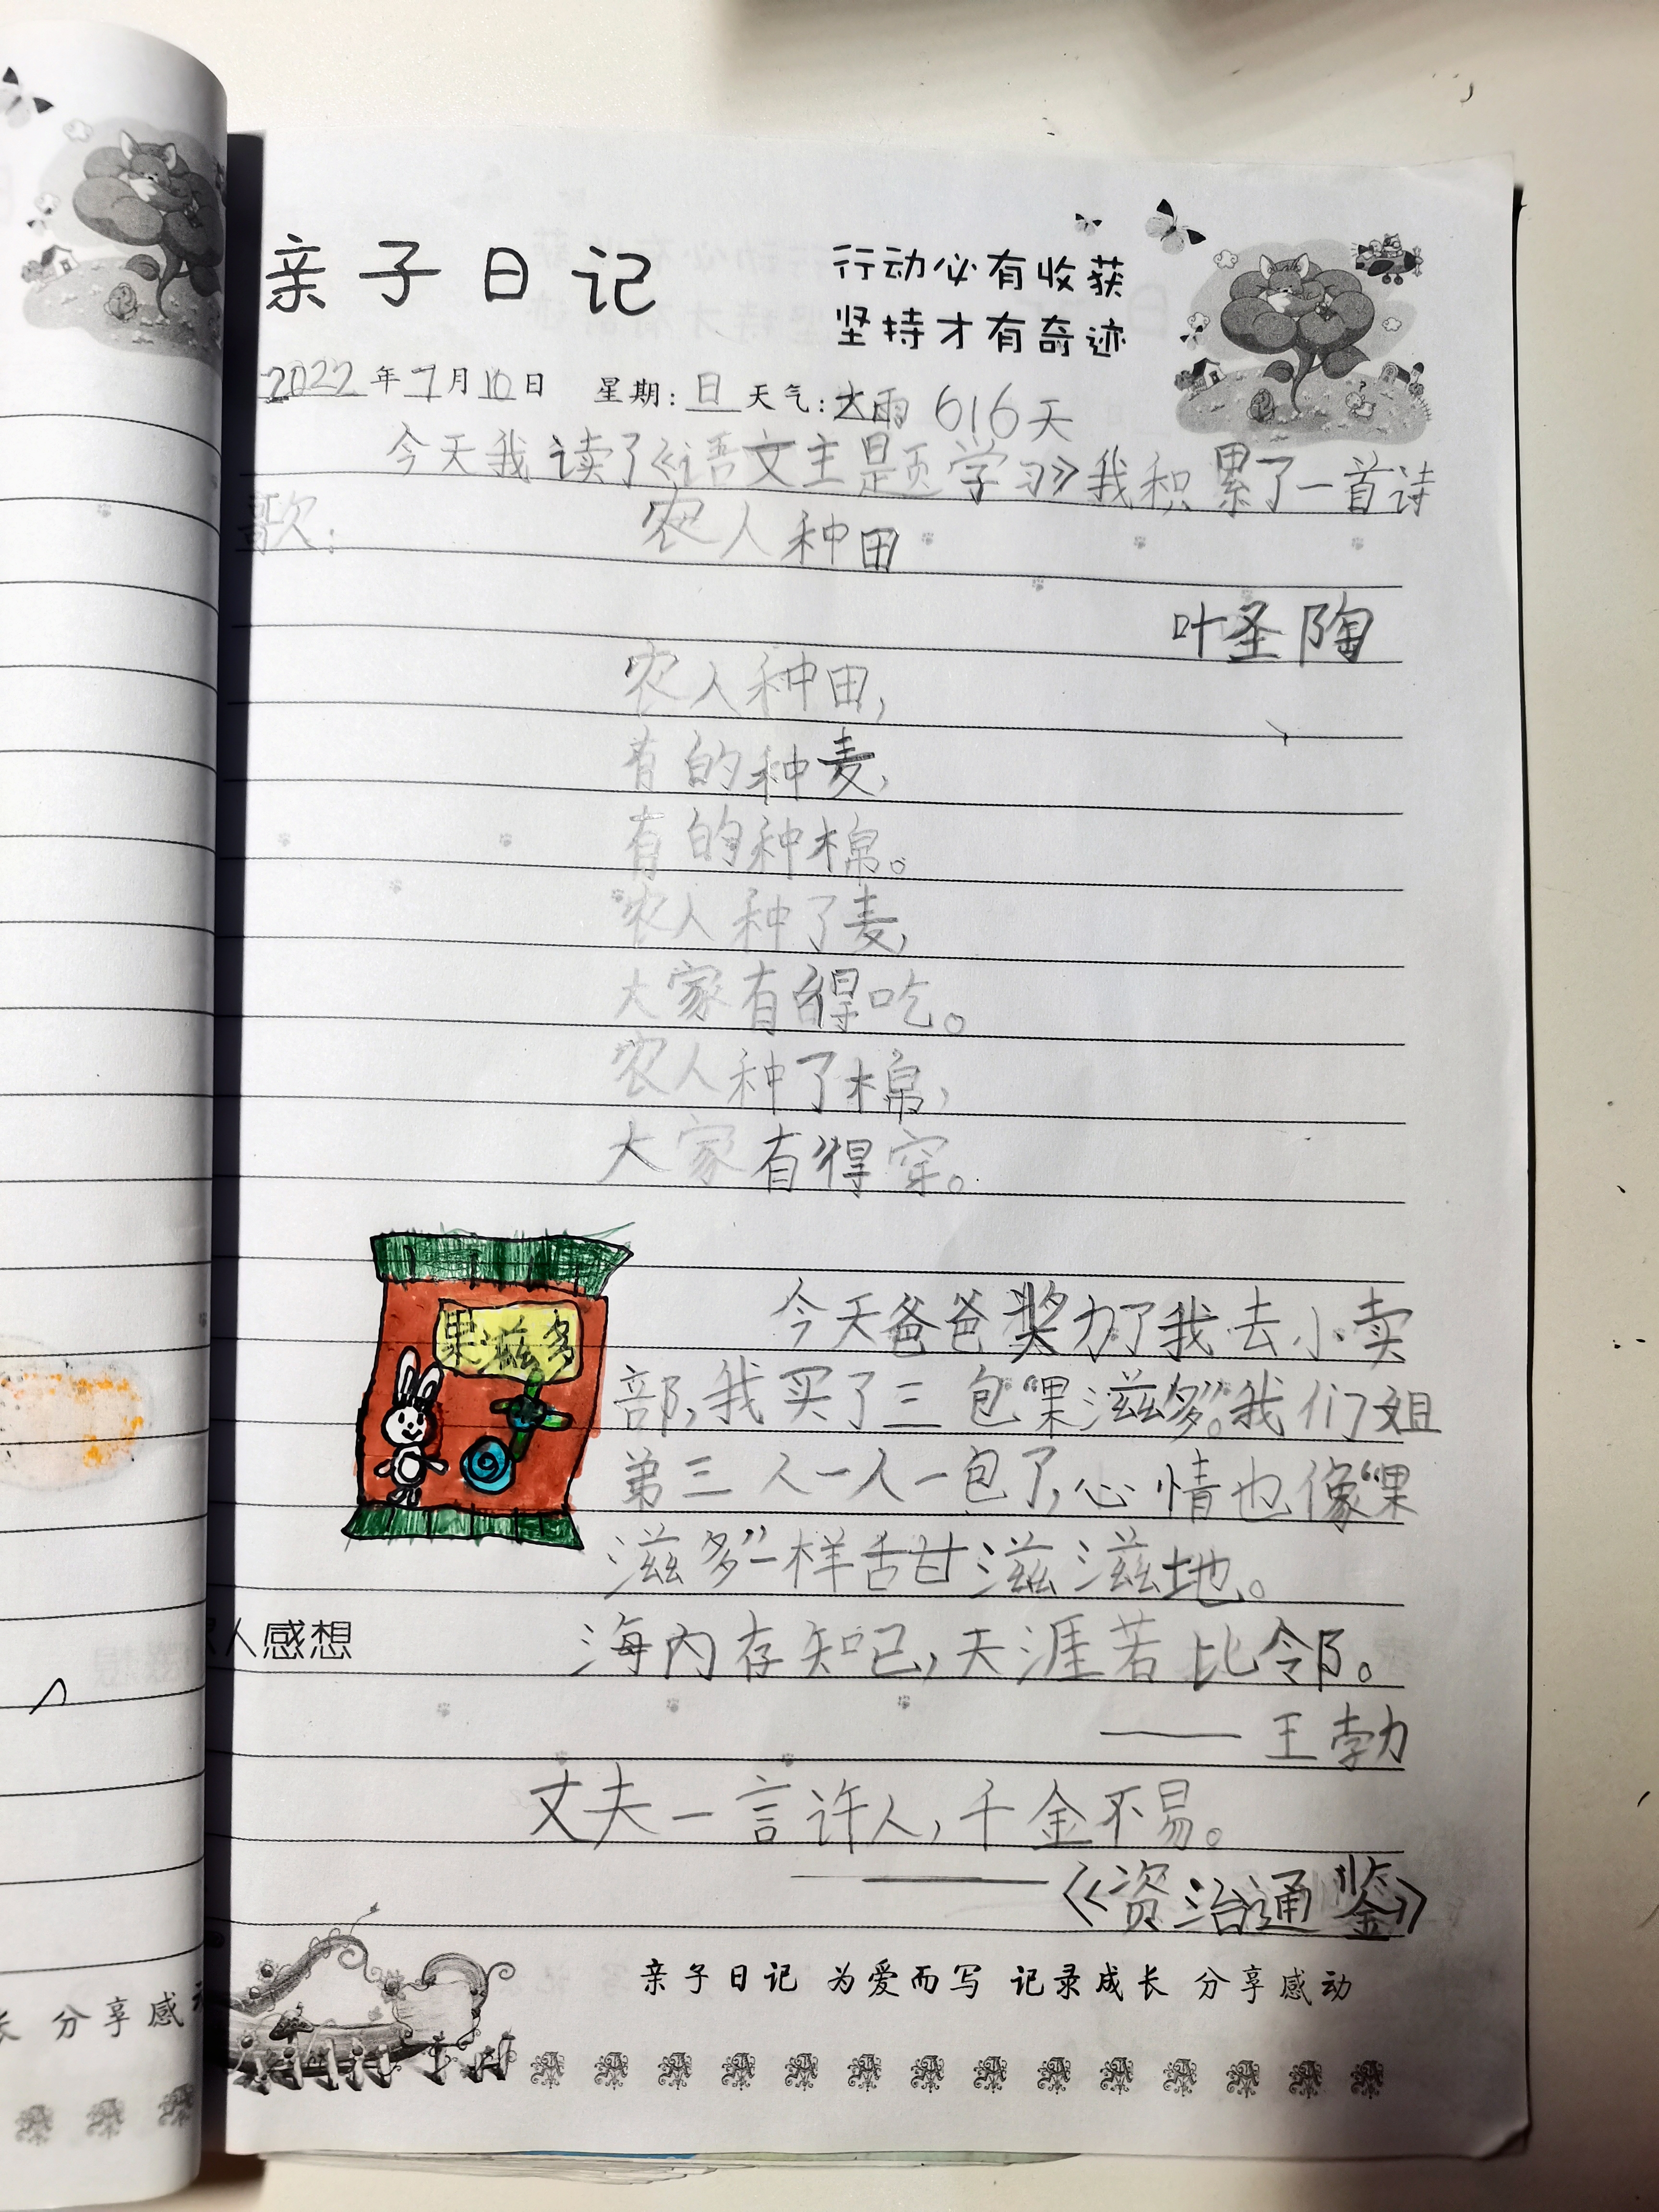 亲子日记
行动必有收获
坚持才有奇迹
2022年7月10日 星期:日 天气:大雨 616天
今天我读了《语文主题学习》我积累了一首诗
歌:
农人种田
叶圣陶
农人种田,
有的种麦,
有的种棉。
农人种了麦,
大家有得吃。
农人种了棉,
大家有得穿。
果滋多
今天爸爸奖力了我去小卖
部,我买了三包“果滋多”。我们姐
弟三人一人一包了,心情也像“果
滋多”一样甜滋滋地。
人感想
海内存知己,天涯若比邻。
——王勃
丈夫一言许人,千金不易。
——《资治通鉴》
亲子日记 为爱而写 记录成长 分享感动
长 分享感